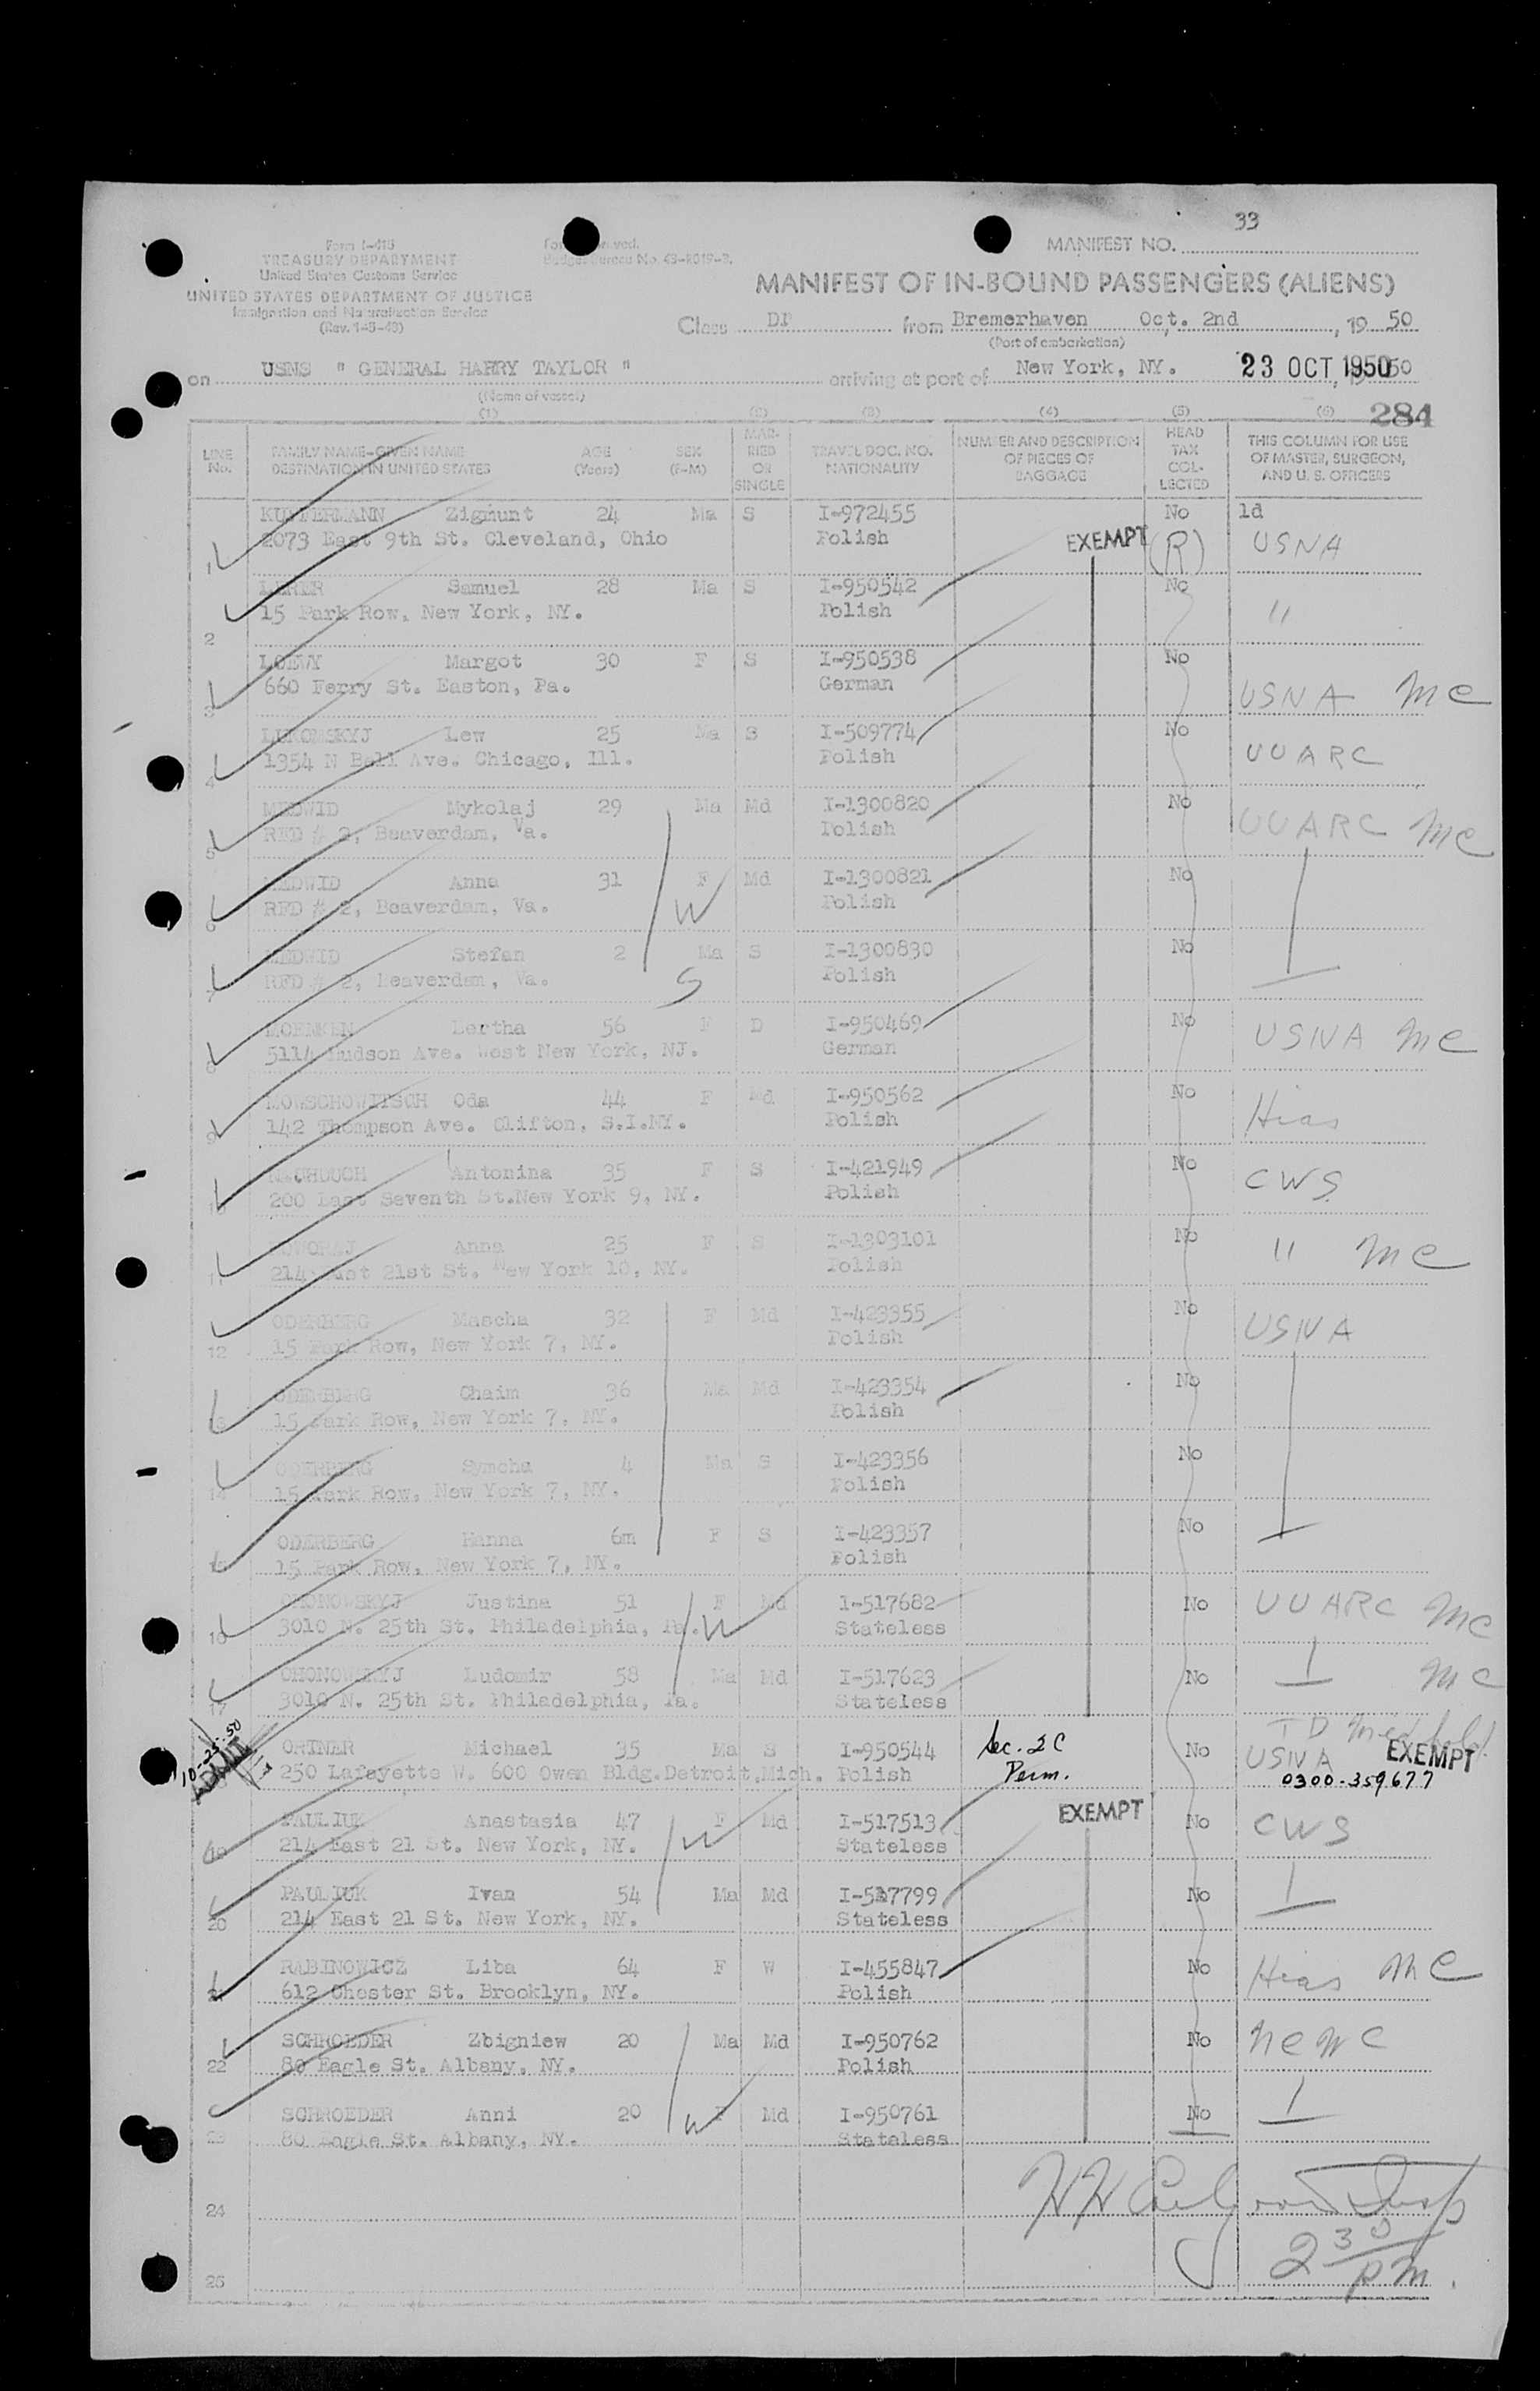 33
Form I-415
TREASURY DEPARTMENT
United States Customs Service
UNITED STATES DEPARTMENT OF JUSTICE
Immigration and Naturalization Service
(Rev. 1-3-49)
Budget Bureau No. 43-R019-2.
MANIFEST NO.
MANIFEST OF IN-BOUND PASSENGERS (ALIENS)
Class DP from Bremerhaven Oct. 2nd, 19 50
(Port of embarkation)
on USNS " GENERAL HARRY TAYLOR " arriving at port of New York, NY. 23 OCT 1950 50
(Name of vessel)
(1) (2) (3) (4) (5) (6) 284
LINE No. FAMILY NAME-GIVEN NAME DESTINATION IN UNITED STATES AGE (Years) SEX (F-M) MARRIED OR SINGLE TRAVEL DOC. NO. NATIONALITY NUMBER AND DESCRIPTION OF PIECES OF BAGGAGE HEAD TAX COLLECTED THIS COLUMN FOR USE OF MASTER, SURGEON, AND U. S. OFFICERS
1 KUPFERMANN Zigmunt 24 Ma S I-972455 No ld
2073 East 9th St. Cleveland, Ohio Polish EXEMPT (R) USNA
LERER Samuel 28 Ma S I-950542 No
2 15 Park Row, New York, NY. Polish "
LOEWY Margot 30 F S I-950538 No
3 660 Ferry St. Easton, Pa. German USNA MC
LUKOMSKYJ Lew 25 Ma S I-509774 No
4 1354 N Bell Ave. Chicago, Ill. Polish UUARC
MEDWID Mykolaj 29 Ma Md I-1300820 No
5 RFD # 2, Beaverdam, Va. Polish UUARC MC
MEDWID Anna 31 F Md I-1300821 No
6 RFD # 2, Beaverdam, Va. W Polish
MEDWID Stefan 2 Ma S I-1300830 No
7 RFD # 2, Beaverdam, Va. S Polish
MOENKEN Bertha 56 F D I-950469 No
8 5114 Hudson Ave. West New York, NJ. German USNA MC
MOWSCHOWITSCH Oda 44 F Md I-950562 No
9 142 Thompson Ave. Clifton, S.I.NY. Polish Hias
Antonina 35 F S I-421949 No
10 200 East Seventh St.New York 9, NY. Polish CWS
Anna 25 F S I-1303101 No
11 214 East 21st St. New York 10, NY. Polish " MC
ODERBERG Mascha 32 F Md I-423355 No
12 15 Park Row, New York 7, NY. Polish USNA
ODERBERG Chaim 36 Ma Md I-423354 No
13 15 Park Row, New York 7, NY. Polish
ODERBERG Symcha 4 Ma S I-423356 No
14 15 Park Row, New York 7, NY. Polish
ODERBERG Hanna 6m F S I-423357 No
15 15 Park Row, New York 7, NY. Polish
Justina 51 F Md I-517682 No UUARC MC
16 3010 N. 25th St. Philadelphia, Pa. W Stateless
Ludomir 58 Ma Md I-517623 No MC
17 3010 N. 25th St. Philadelphia, Pa. Stateless
10-25-50 ADMIT ORTNER Michael 35 Ma S I-950544 Sec. 2C No TD med hold.
250 Lafayette W. 600 Owen Bldg.Detroit,Mich. Polish Perm. USNA EXEMPT
0300-359677
PAULIUK Anastasia 47 F Md I-517513 EXEMPT No CWS
19 214 East 21 St. New York, NY. W Stateless
PAULIUK Ivan 54 Ma Md I-517799 No
20 214 East 21 St. New York, NY. Stateless
RABINOWICZ Liba 64 F W I-455847 No Hias MC
21 612 Chester St. Brooklyn, NY. Polish
SCHROEDER Zbigniew 20 Ma Md I-950762 No NCWC
22 80 Eagle St. Albany, NY. Polish
SCHROEDER Anni 20 F Md I-950761 No
23 80 Eagle St. Albany, NY. W Stateless
24
25
2 30 pm.